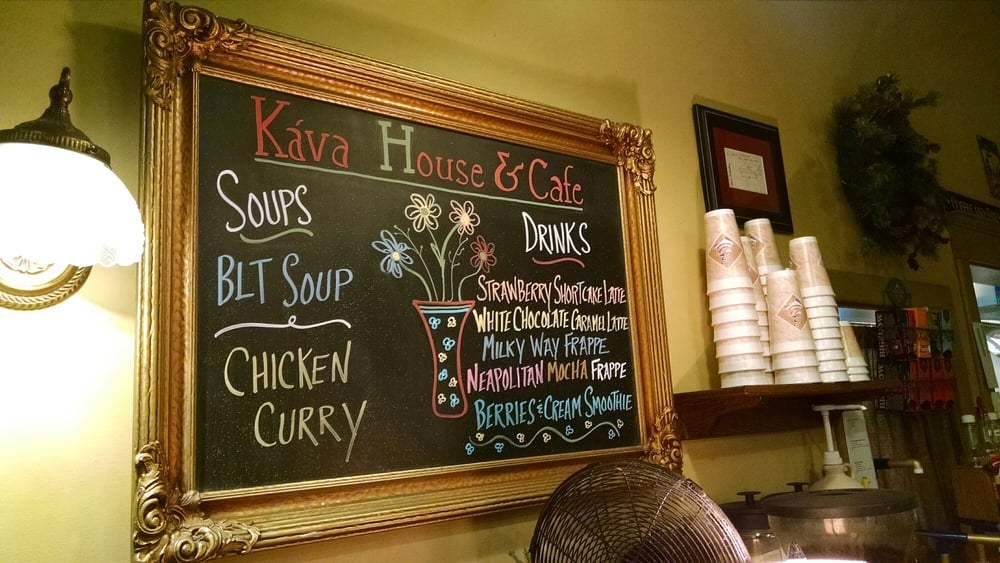 Káva House & Cafe
Soups
BLT Soup
Chicken
Curry
Drinks
Strawberry Shortcake Latte
White Chocolate Caramel Latte
Milky Way Frappe
Neapolitan Mocha Frappe
Berries & Cream Smoothie